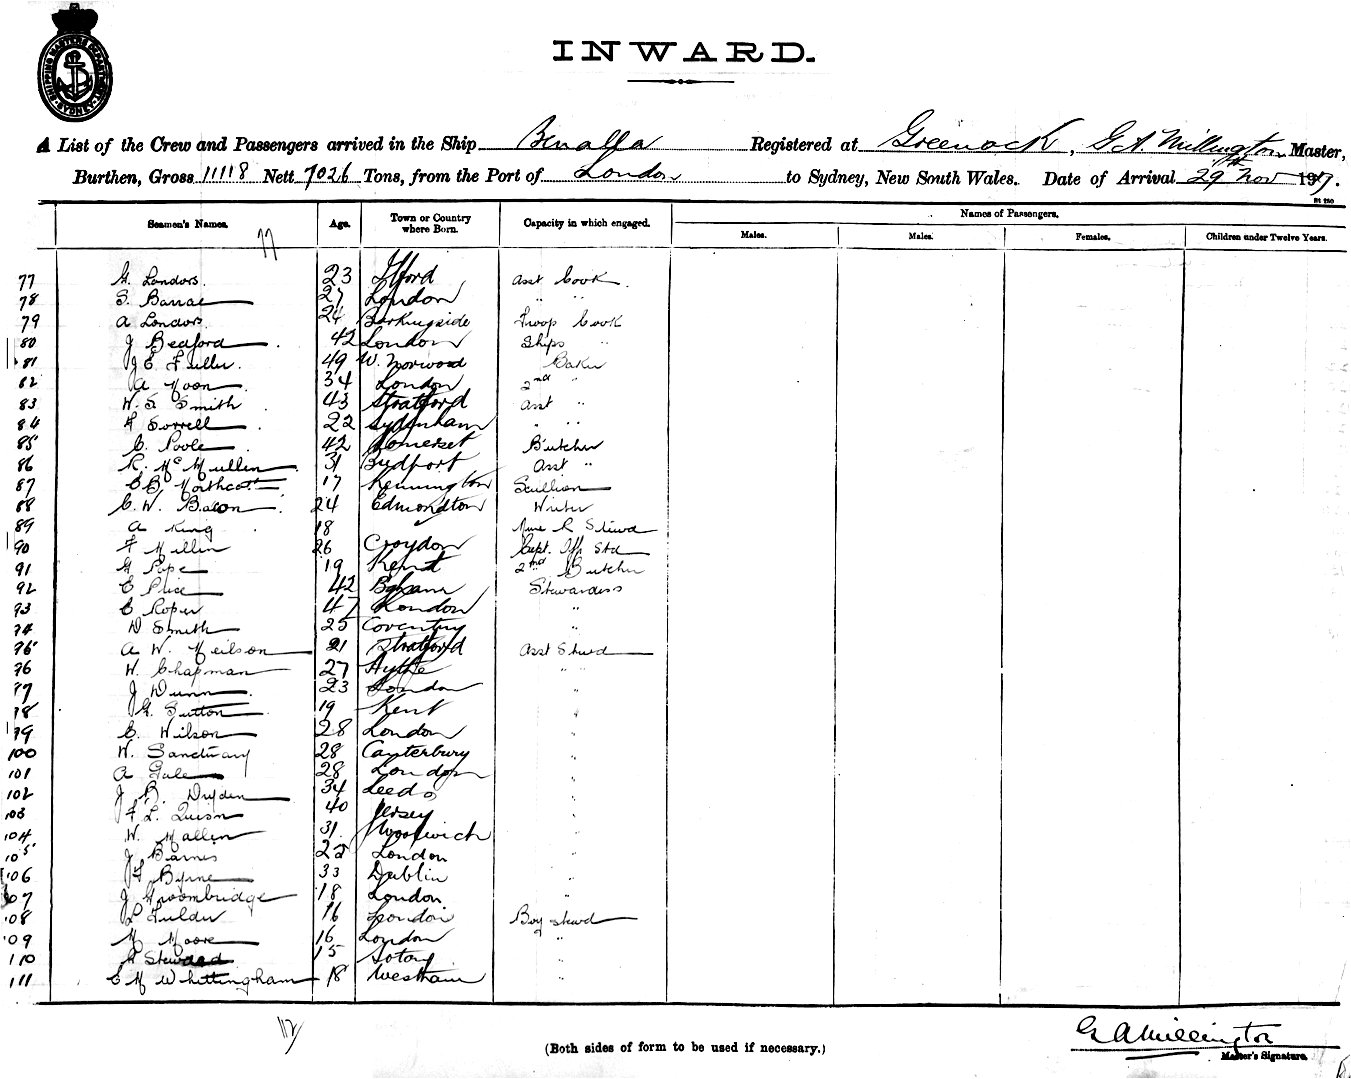 SHIPPING MASTERS DEPARTMENT SYDNEY
INWARD.
A List of the Crew and Passengers arrived in the Ship Benalla Registered at Greenock, G A Millington Master,
Burthen, Gross 11118 Nett 7026 Tons, from the Port of London to Sydney, New South Wales. Date of Arrival 29th Nov 1917.
Seamen's Names. Age. Town or Country where Born. Capacity in which engaged. Names of Passengers.
Males. Males. Females. Children under Twelve Years.
77
77 G. Londors. 23 Ilford Asst Cook.
78 S. Barrae 27 London " "
79 A Londors. 24 Barkingside Troop Cook
80 J Bedford. 42 London Ships "
81 J E. Fuller. 49 W. Norwood Baker
82 A Moon. 34 London 2nd "
83 W. S Smith. 43 Stratford Asst "
84 F Sorrell. 22 Sydenham " "
85 C. Poole. 42 Somerset Butcher
86 R. McMullen. 31 Bridport Asst "
87 C B Northcott. 17 Kennington Scullion
88 C. W. Bacon. 24 Edmondton Writer
89 A King. 18 " Stewd
90 F Millin 26 Croydon Capt. Off Std
91 G Pope 19 Kent 2nd Butcher
92 E Price 42 Stewardess
93 C Roper 47 London "
94 D Smith 25 Coventry "
95 A W. Neilson 21 Stratford Asst Stwd
96 W. Chapman 27 Hythe " "
97 J Dunn. 23 London "
98 J G. Sutton 19 Kent "
99 C. Wilson 28 London "
100 W. Sanctuary 28 Canterbury "
101 A Gale 28 London "
102 J B. Dryden 34 Leeds "
103 F L. 40 Jersey "
104 W. Mallin 31. Woolwich "
105 J Barnes 22 London "
106 J F Byrne 33 Dublin "
107 J Groombridge 18 London "
108 L Fulder 16 London Boy Stewd
109 M Moore 16 London "
110 H Steward 15 Soton "
111 C M Whittingham 18 Westham "
(Both sides of form to be used if necessary.)
G A Millington
Master's Signature.